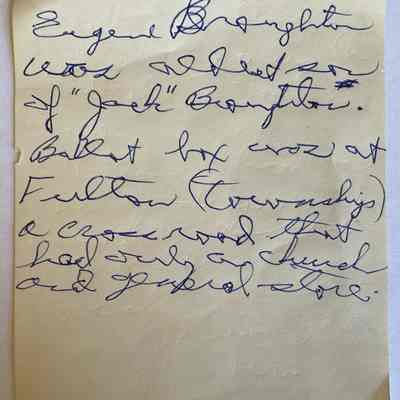 Eugene Broughton
was oldest son
of "Jack" Broughton.
Ballot box was at
Fulton (township)
a crossroad that
had only a church
and general store.